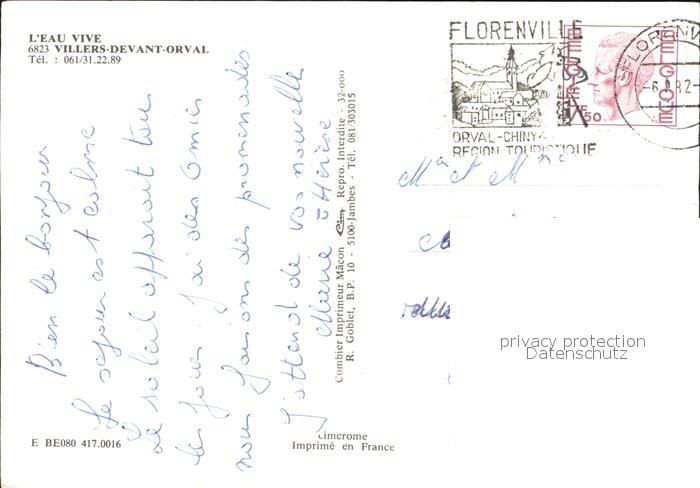 L'EAU VIVE
6823 VILLERS-DEVANT-ORVAL
Tél. : 061/31.22.89
Bien le bonjour
Le séjour est calme
Le soleil apparait tous
les jours. J'ai des amies
nous faisons des promenades
J'attend de vos nouvelles
Marie Thérèse
Combier Imprimeur Mâcon Cim Repro. Interdite - 32-000
R. Goblet, B.P. 10 - 5100-Jambes - Tél. 081/303015
E BE080 417.0016
cimcrome
Imprimé en France
FLORENVILLE
ORVAL-CHINY
REGION TOURISTIQUE
FLORENV
-6 82-
BELGIE-BELGIQUE
50
Mr et Mme
privacy protection
Datenschutz